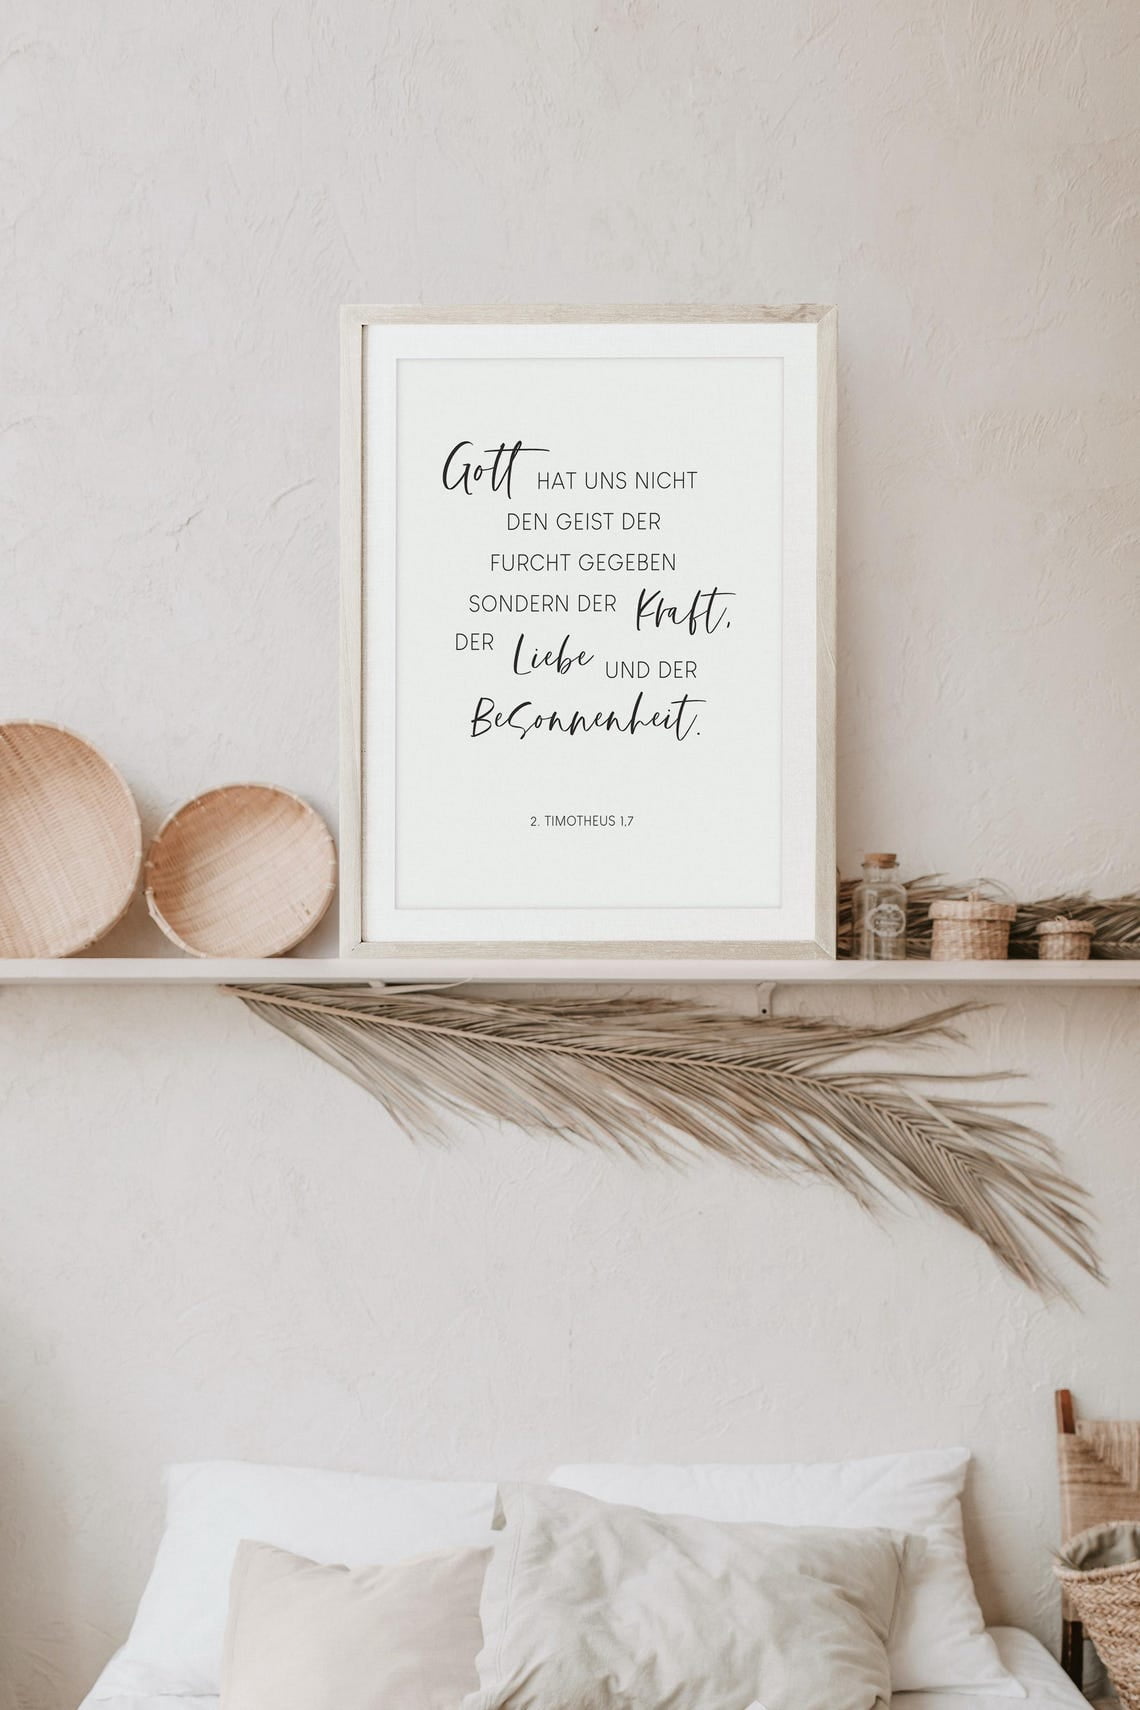 Gott HAT UNS NICHT
DEN GEIST DER
FURCHT GEGEBEN
SONDERN DER Kraft,
DER Liebe UND DER
Besonnenheit.
2. TIMOTHEUS 1,7